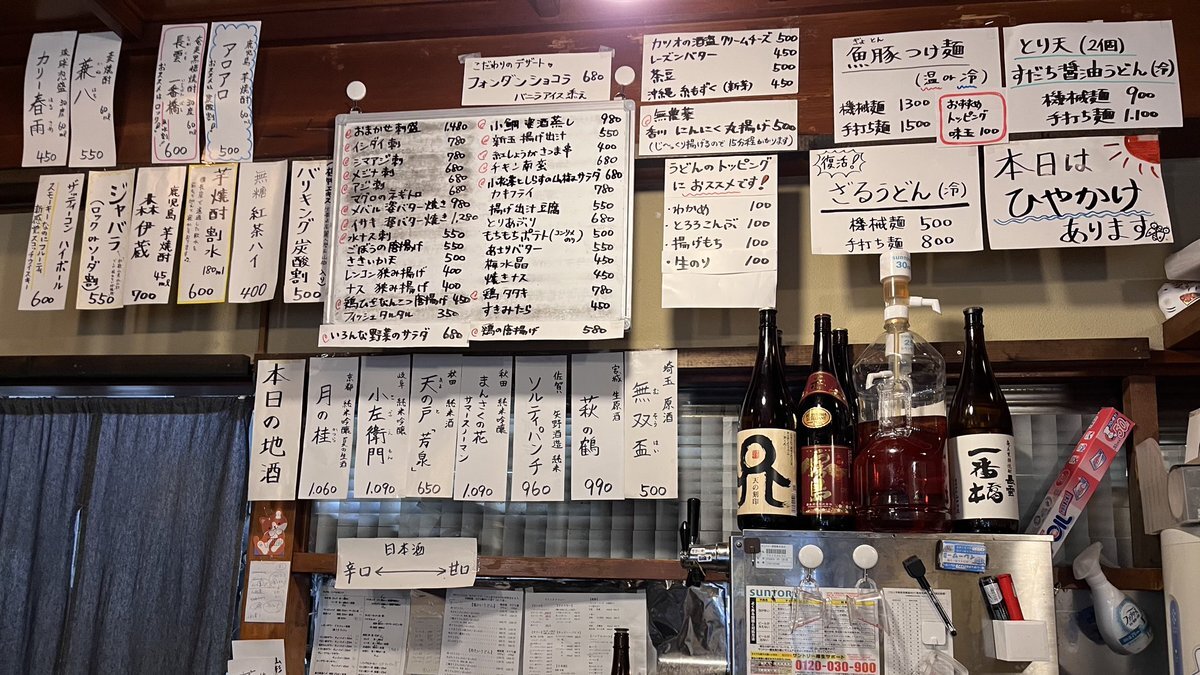 琉球泡盛 30度
カリー春雨
450
麦焼酎
兼八
550
奄美黒糖焼酎 30度
長雲 一番橋
おススメはロック!!
600
鹿児島 芋焼酎
アロアロ
500
こだわりのデザート。
フォンダンショコラ 680
バニラアイス添え
カツオの酒盗クリームチーズ 500
レーズンバター 450
茶豆 500
沖縄 糸もずく(新芽) 450
無農薬
香川 にんにく丸揚げ 500
(じ〜っくり揚げるので15分程かかります)
ぎょとん
魚豚つけ麺
(温or冷)
機械麺 1300
手打ち麺 1500
おすすめ
トッピング
味玉100
とり天(2個)
すだち醤油うどん(冷)
機械麺 900
手打ち麺 1.100
復活!
ざるうどん(冷)
機械麺 500
手打ち麺 800
本日は
ひやかけ
あります
うどんのトッピング
におススメです!
・わかめ 100
・とろろこんぶ 100
・揚げもち 100
・生のり 100
おまかせ刺盛 1.480
イシダイ刺 780
シマアジ刺 780
メジナ刺 680
アジ刺 680
マグロのネギトロ 680
メバル 姿バター焼き 980
イサキ 姿バター焼き 1.280
水ナス刺 550
ごぼうの唐揚げ 550
ささいか天 500
レンコン挟み揚げ 400
ナス 挟み揚げ 400
鶏ひざなんこつ唐揚げ 450
フィッシュタルタル 350
いろんな野菜のサラダ 680
小鯛 東酒蒸し 980
新玉 揚げ出汁 550
紅しょうがさつま串 400
チキン南蛮 680
小松菜としらすの仏梅サラダ 680
カキフライ 680
揚げ出汁豆腐 550
とりあぶり 680
もちもちポテト(コンソメorのり) 500
あさりバター 550
梅水晶 450
焼きナス 450
鶏タタキ 780
すきみたら 450
鶏の唐揚げ 580
ザッティフーン ハイボール
スモーキーなのにフルーティ
600
ジャパラ
(ロックorソーダ割)
550
鹿児島 芋焼酎
森伊蔵
45ml
700
芋焼酎割水
180ml
600
無糖紅茶ハイ
400
バリキング炭酸割
500
本日の地酒
京都 純米吟醸 夏の生酒
月の桂
1.060
岐阜 純米吟醸
小左衛門
1.090
秋田 純米酒
天の戸「芳泉」
650
秋田 純米吟醸
まんさくの花
サマースノーマン
1.090
佐賀 矢野酒造 純米
ソルティパンチ
960
宮城 生原酒
萩の鶴
990
埼玉 原酒
無双盃
500
日本酒
辛口 ←→ 甘口
天の刻印
一番橋
長雲
SUNTORY
サントリー樽生サポート
0120-030-900